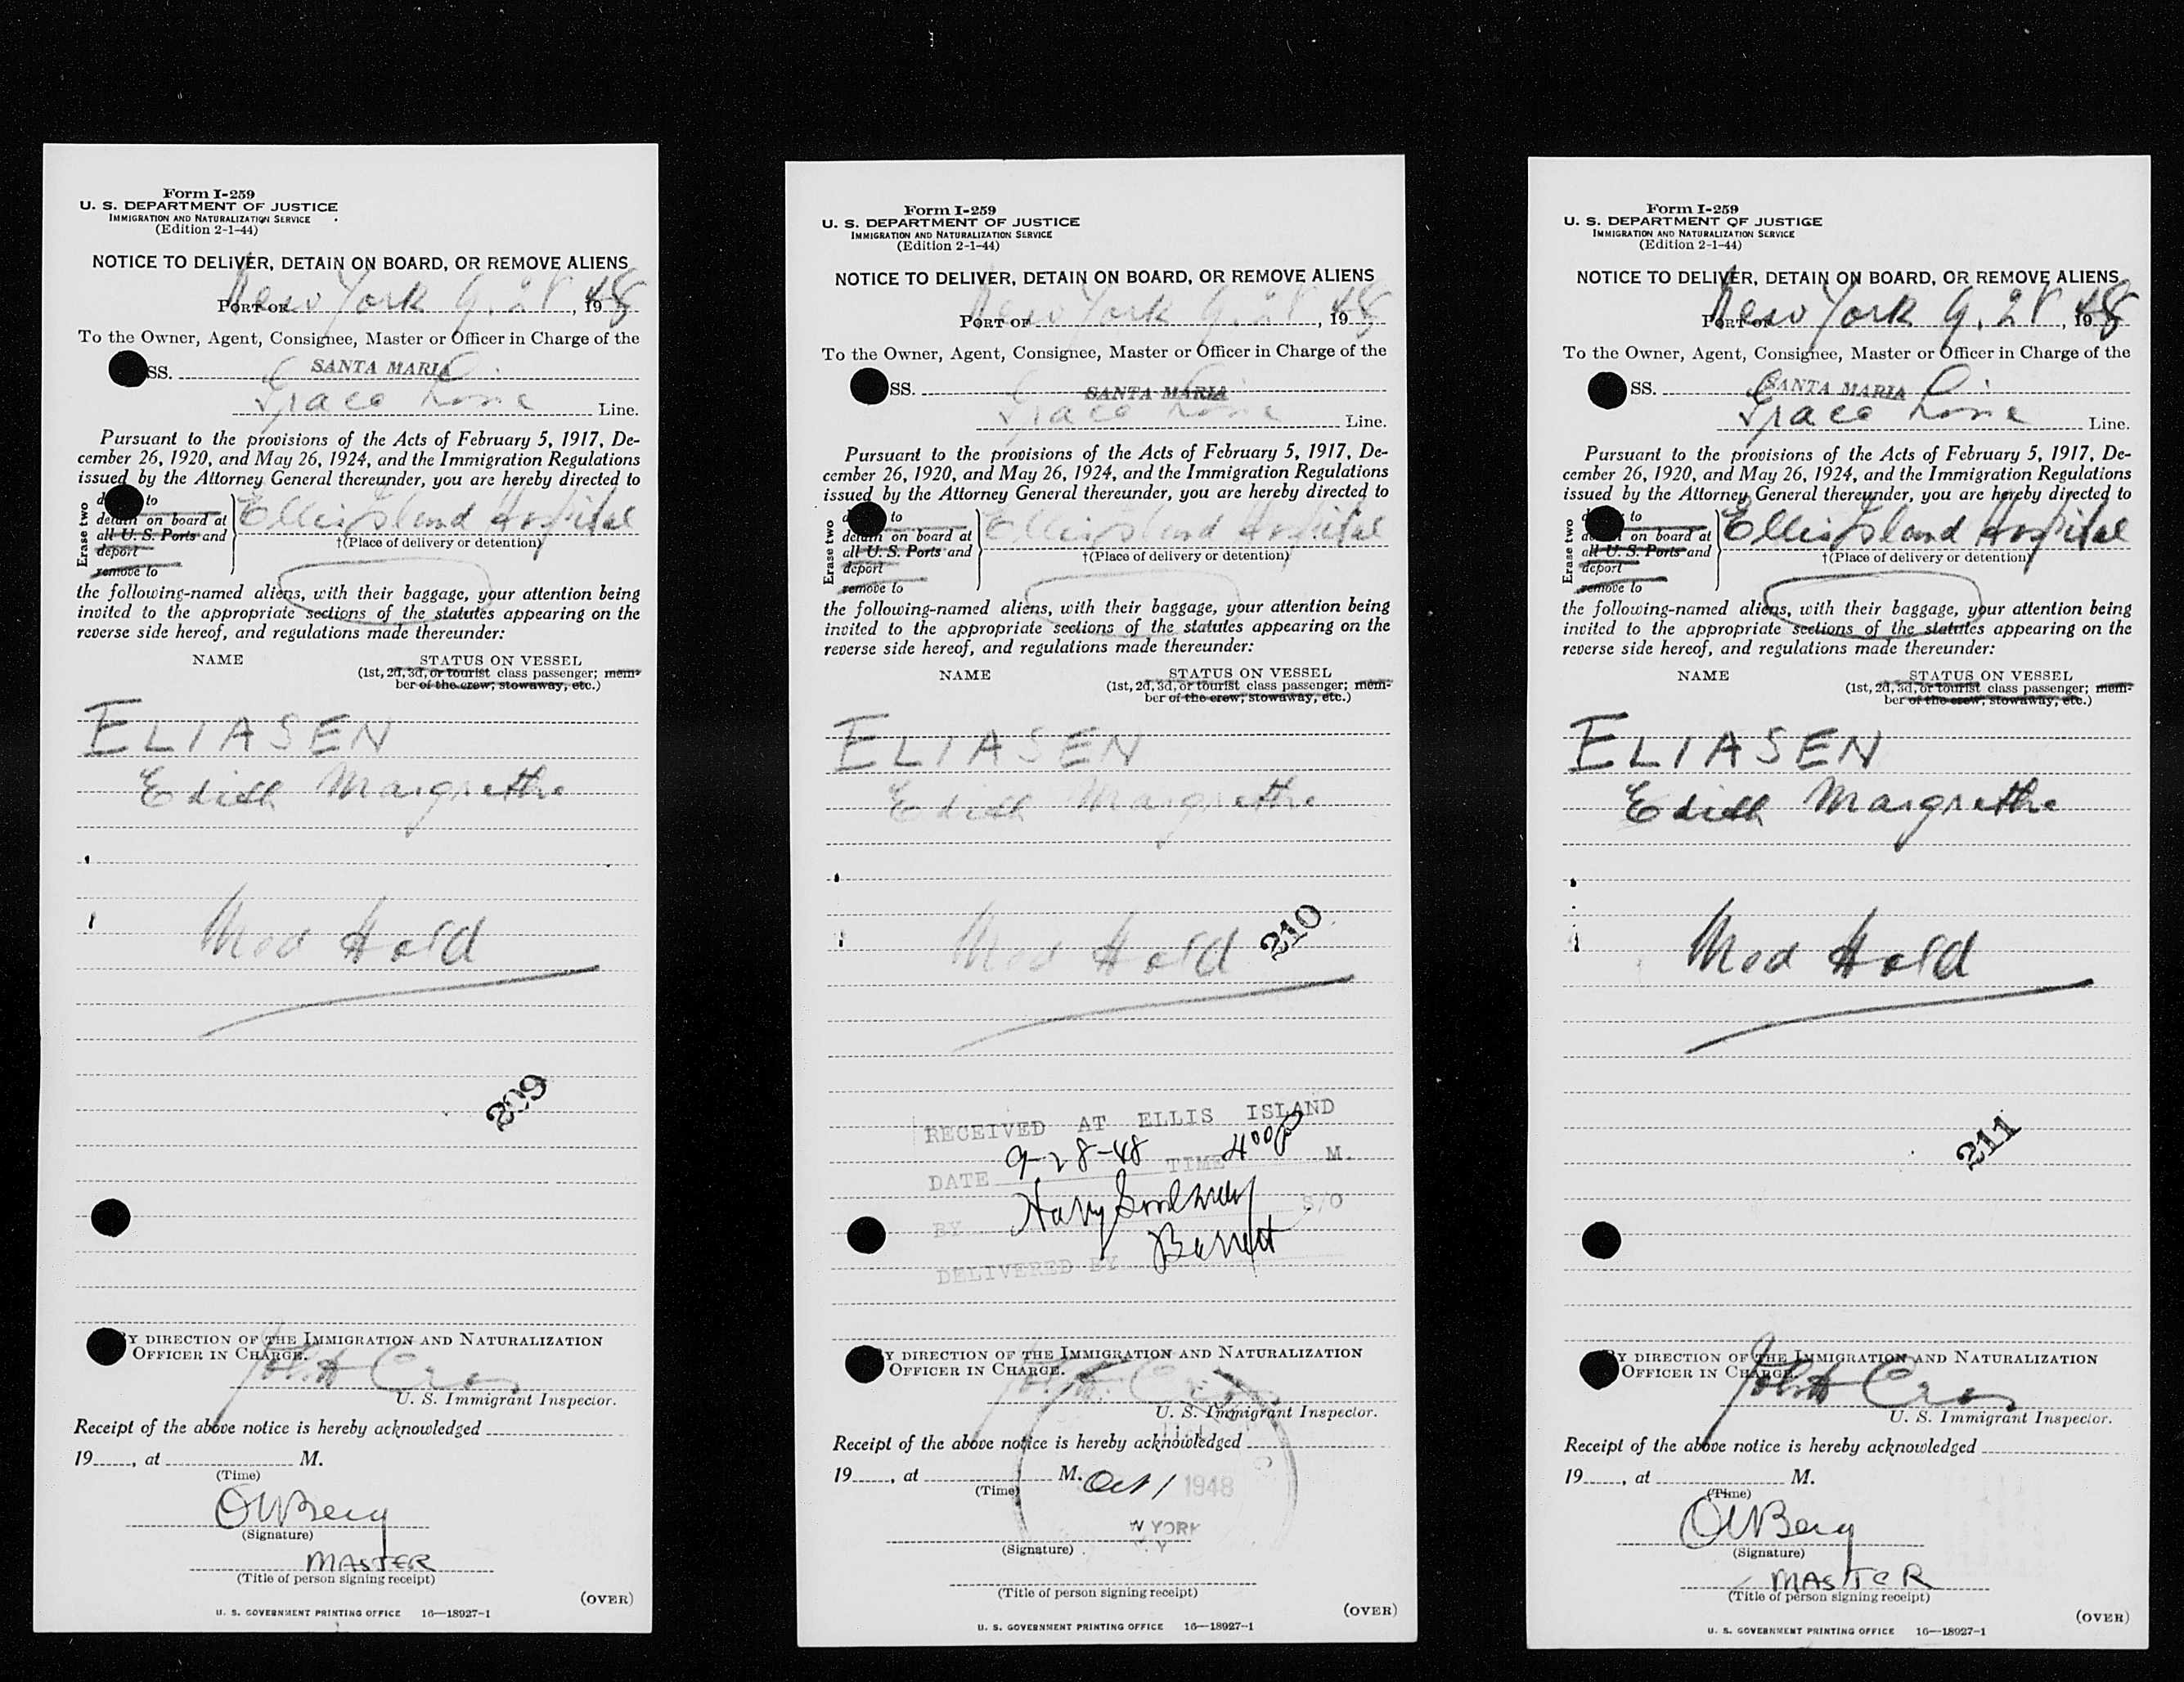 Form I-259
U. S. DEPARTMENT OF JUSTICE
IMMIGRATION AND NATURALIZATION SERVICE
(Edition 2-1-44)
NOTICE TO DELIVER, DETAIN ON BOARD, OR REMOVE ALIENS
PORT OF New York 9. 28, 1948
To the Owner, Agent, Consignee, Master or Officer in Charge of the
SS. SANTA MARIA
Grace Line Line.
Pursuant to the provisions of the Acts of February 5, 1917, De-
cember 26, 1920, and May 26, 1924, and the Immigration Regulations
issued by the Attorney General thereunder, you are hereby directed to
Erase two
to
detain on board at
all U. S. Ports and
deport
remove to
Ellis Island Hospital
†(Place of delivery or detention)
the following-named aliens, with their baggage, your attention being
invited to the appropriate sections of the statutes appearing on the
reverse side hereof, and regulations made thereunder:
NAME STATUS ON VESSEL
(1st, 2d, 3d, or tourist class passenger; mem-
ber of the crew; stowaway, etc.)
ELIASEN
Edith Margrethe
Med Hold
209
BY DIRECTION OF THE IMMIGRATION AND NATURALIZATION
OFFICER IN CHARGE.
U. S. Immigrant Inspector.
Receipt of the above notice is hereby acknowledged
19, at M.
(Time)
OWBerg
(Signature)
MASTER
(Title of person signing receipt)
(OVER)
U. S. GOVERNMENT PRINTING OFFICE 16—18927-1
Form I-259
U. S. DEPARTMENT OF JUSTICE
IMMIGRATION AND NATURALIZATION SERVICE
(Edition 2-1-44)
NOTICE TO DELIVER, DETAIN ON BOARD, OR REMOVE ALIENS
PORT OF New York 9. 28, 1948
To the Owner, Agent, Consignee, Master or Officer in Charge of the
SS. SANTA MARIA
Grace Line Line.
Pursuant to the provisions of the Acts of February 5, 1917, De-
cember 26, 1920, and May 26, 1924, and the Immigration Regulations
issued by the Attorney General thereunder, you are hereby directed to
Erase two
to
detain on board at
all U. S. Ports and
deport
remove to
Ellis Island Hospital
†(Place of delivery or detention)
the following-named aliens, with their baggage, your attention being
invited to the appropriate sections of the statutes appearing on the
reverse side hereof, and regulations made thereunder:
NAME STATUS ON VESSEL
(1st, 2d, 3d, or tourist class passenger; mem-
ber of the crew; stowaway, etc.)
ELIASEN
Edith Margrethe
Med Hold
210
RECEIVED AT ELLIS ISLAND
DATE 9-28-48 TIME 4 00 P M.
BY Harry S/O
DELIVERED BY Barrett
BY DIRECTION OF THE IMMIGRATION AND NATURALIZATION
OFFICER IN CHARGE.
U. S. Immigrant Inspector.
Receipt of the above notice is hereby acknowledged
19, at M. Oct 1 1948
(Time)
W YORK
(Signature)
(Title of person signing receipt)
(OVER)
U. S. GOVERNMENT PRINTING OFFICE 16—18927-1
Form I-259
U. S. DEPARTMENT OF JUSTICE
IMMIGRATION AND NATURALIZATION SERVICE
(Edition 2-1-44)
NOTICE TO DELIVER, DETAIN ON BOARD, OR REMOVE ALIENS
PORT OF New York 9. 28, 1948
To the Owner, Agent, Consignee, Master or Officer in Charge of the
SS. SANTA MARIA
Grace Line Line.
Pursuant to the provisions of the Acts of February 5, 1917, De-
cember 26, 1920, and May 26, 1924, and the Immigration Regulations
issued by the Attorney General thereunder, you are hereby directed to
Erase two
to
on board at
all U. S. Ports and
deport
remove to
Ellis Island Hospital
†(Place of delivery or detention)
the following-named aliens, with their baggage, your attention being
invited to the appropriate sections of the statutes appearing on the
reverse side hereof, and regulations made thereunder:
NAME STATUS ON VESSEL
(1st, 2d, 3d, or tourist class passenger; mem-
ber of the crew; stowaway, etc.)
ELIASEN
Edith Margrethe
Med Hold
211
BY DIRECTION OF THE IMMIGRATION AND NATURALIZATION
OFFICER IN CHARGE.
U. S. Immigrant Inspector.
Receipt of the above notice is hereby acknowledged
19, at M.
(Time)
OWBerg
(Signature)
MASTER
(Title of person signing receipt)
(OVER)
U. S. GOVERNMENT PRINTING OFFICE 16—18927-1